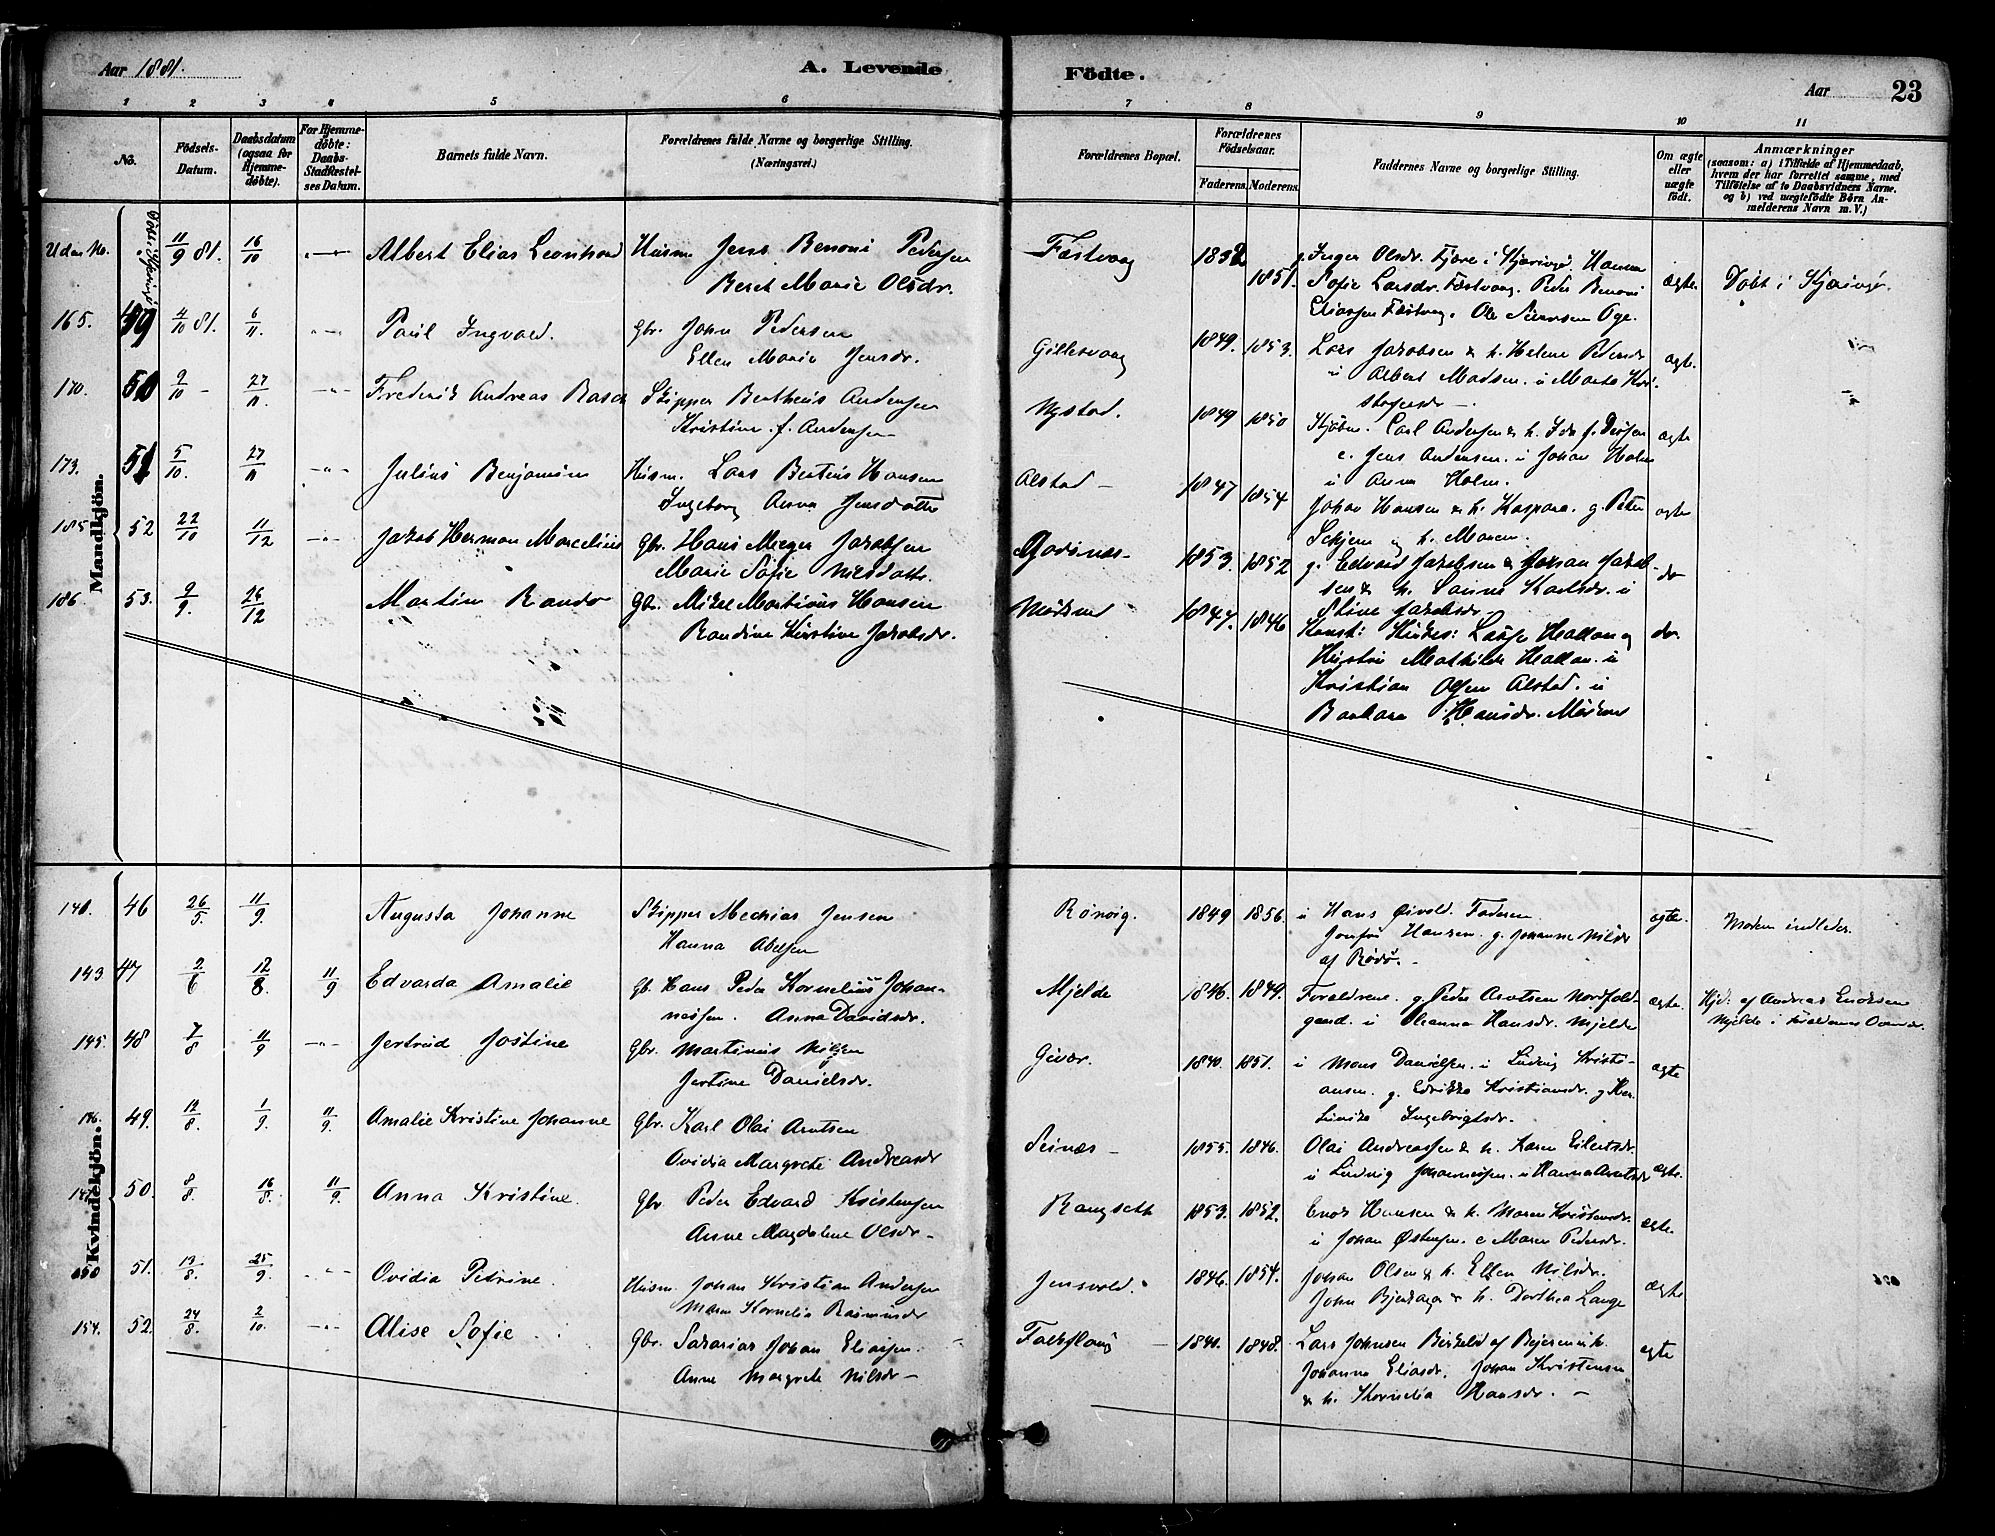 Aar 1881.
A. Levende Födte.
Aar 23
1 2 3 4 5 6 7 8 9 10 11
No.
Födsels-Datum.
Daabsdatum (ogsaa for Hjemme-döbte).
For Hjemme-döbte: Daabs-Stadfæstel-ses Datum.
Barnets fulde Navn.
Forældrenes fulde Navne og borgerlige Stilling. (Næringsvei.)
Forældrenes Bopæl.
Forældrenes Födselsaar.
Faderens. Moderens.
Faddernes Navne og borgerlige Stilling.
Om ægte eller uægte födt.
Anmærkninger
(saasom: a) i Tilfælde af Hjemmedaab,
hvem der har forrettet samme, med
Tilföielse af to Daabsvidners Navne.
og b) ved uægtefödte Börn An-
melderens Navn m.V.)
Mandkjön.
Uden No. 11/9 81. 16/10 Albert Elias Leonhard Husm. Jens Benoni Pedersen
Beret Marie Olsdr.
Fæstvaag 1851. Inger Olsdr. Fjære i Kjæringø. Hanna
Sofie Larsdr. Fæstvaag. Peder Benoni
Eliassen Fæstvag. Ole
ægte Døbt i Kjæringø.
165. 49 4/10 81. 6/11 Paul Ingvald. Gbr. John Pedersen
Ellen Marie Jensdr.
Gillesvaag 1849. 1853. Lars Jakobsen & h. Helene Pedersdr
u Albert Madsen. u Marta Kri-
stofersdr
ægte.
170. 50 9/10 27/11 Frederik Andreas Rasch Skipper Bertheus Andersen
Kristine f. Andersen
Nystad. 1849 1850 Kjøbm. Carl Andersen & h. Ida f.
e. Jens Andersen. u Johan Holm
u Anna Holm.
ægte
173. 51 5/10. 27/11 Julius Benjamin Husm. Lars Berteus Hansen
Ingeborg Anna Jensdatter
Alstad 1847 1854 Johan Hansen & h. Kaspara. g. Peter
Schjem og h. Maren.
ægte
185. 52 22/10 11/12 Jakob Herman Marcelius Gbr. Hans Meyer Jakobsen
Marie Sofie Nilsdatter.
Godsnæs 1853. 1852 g. Edvard Jakobsen & Johan Jakob-
sen & h. Sanne Karlsdr. u
Stine Jakobsdr.
do
186. 53. 9/9. 26/12 Martin Rando Gbr. Mikel Martinus Hansen
Randine Kirstine Jakobsdr.
Mørkved 1847. 1846 Konst: Kirkes: Lauge Hallan og
Hustru Mathilde Hallan. u
Kristian Olsen Alstad. u
Barbara Hansdr. Mørkved
do.
Kvindekjön.
46 26/5. 11/9. Augusta Johanne Skipper Mechias Jensen
Hanna Abelsen
Rønvig. 1849 1856. u Hans Øivold. Faderen.
Hansen. g. Johanne Nilsdr
af Rødø.
ægte. Modern indledes.
143 47 2/6 12/8. 11/9 Edvarda Amalie Gb. Hans Peder Kornelius Johan-
nessen. Anna Davidsdr.
Mjelde 1846. 1849. Forældrene. g. Peder Arntsen Nordfold.
gaard. u Oleanna Hansdr. Mjelde
ægte. Hjd. af Andreas Enoksen
Mjelde i Forældrenes
145. 48 7/8 11/9 Jertrud Jostine Gbr. Martinus Nilsen
Jertine Danielsdr.
Givær. 1840. 1851. u Mons Danielsen. u Ludvig Kristi-
ansen. g. Edrikke Kristiansdr. g Her
Ingebrigtsdr.
ægte
146. 49. 12/8. 1/9. 11/9. Amalie Kristine Johanne Gbr. Karl Olai Arntsen
Ovidia Margrete Andreasdr
Seinæs 1855. 1846. Olai Andreassen & h. Karen Eilertsdr.
u Ludvig Johannessen. u Hanna Arntsdr
ægte.
50. 8/8. 16/8. 11/9. Anna Kristine. Gbr. Peder Edvard Kristensen
Anne Magdalene Olsdr.
Rangseth 1853. 1852. Enok Hansen & h. Maren Kristensdr.
u Johan Østensen. e Maren Pedersdr.
ægte.
150 51. 13/8. 25/9. Ovidia Petrine. Husm. Johan Kristian Andersen
Maren Kornelia Rasmusdr
Jensvold. 1846. 1854. Johan Olsen & h. Ellen Nilsdr.
John & h. Dorthea Lange
ægte
154. 52. 24/8. 2/10. Alise Sofie Gbr. Sakarias Johan Eliassen.
Anne Margrete Nilsdr
1840. 1848. Lars Johnsen Birkelid af Bejeren u h.
Johanna Eliasdr. Johan Kristensen
& h. Kornelia Hansdr.
ægte